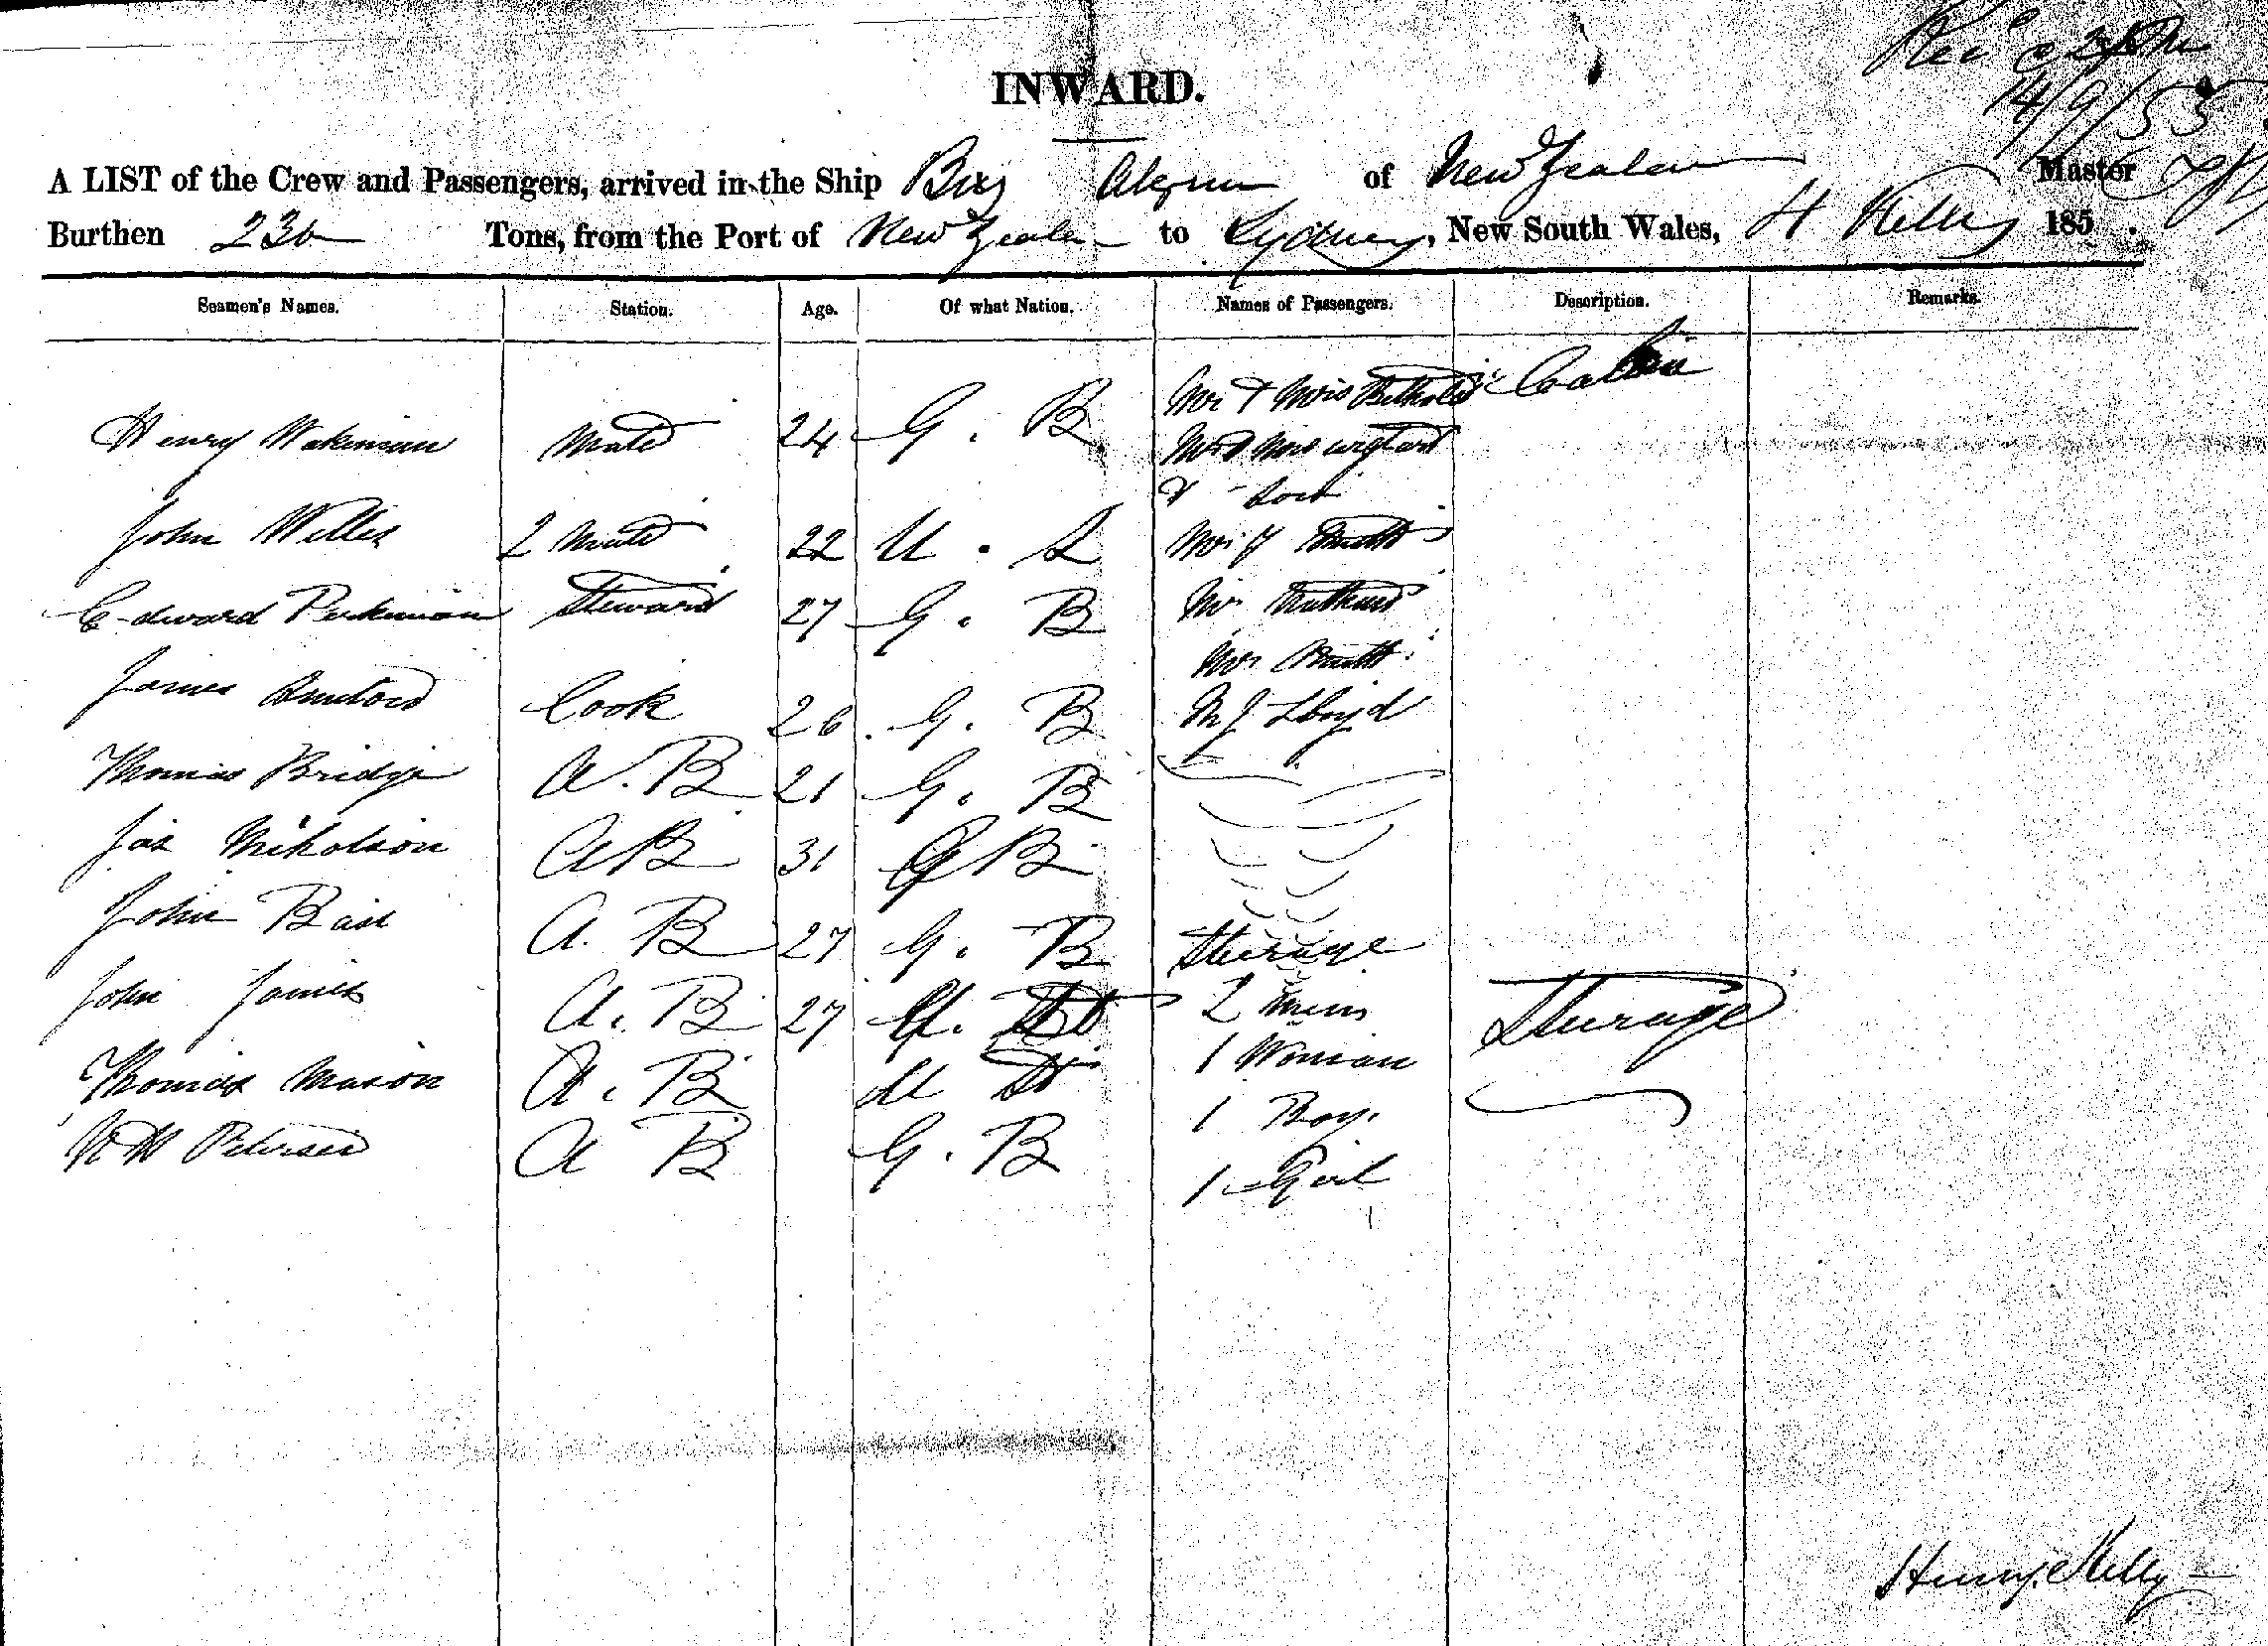 14/9/55
INWARD.
A LIST of the Crew and Passengers, arrived in the Ship Brig of New Zealan Master
Burthen 236 Tons, from the Port of New Zealan to Sydney, New South Wales, H Kelly 185 .
Seamen's Names. Station. Age. Of what Nation. Names of Passengers. Description. Remarks.
Mr & Mrs Cabin
Henry Wakeman Mate 24 G. B Mr & Mrs
&
John Willis 2 Mate 22 U. S Mr J Smith
Edward Perkinson Steward 27 G. B Mr
Mr
James Cook 26 G. B Lloyd
Thomas Bridge A. B 21 G. B
Jas Nicholson AB 31 G B
John A. B 27 G. B Sturage
John James A. B 27 2 Men Sturage
Thomas Mason A. B U St 1 Woman
Wm Petersen A B G. B 1 Boy.
1 Girl
Henry Kelly